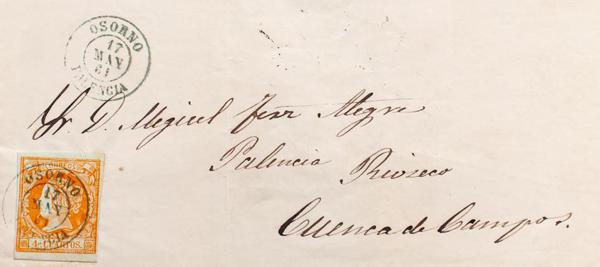 OSORNO
17
MAY
61
PALENCIA
Sr. D. Miguel Ferr Alegre
Palencia Rioseco
Cuenca de Campos.
OSORNO
17
MAY
4 CUARTOS.